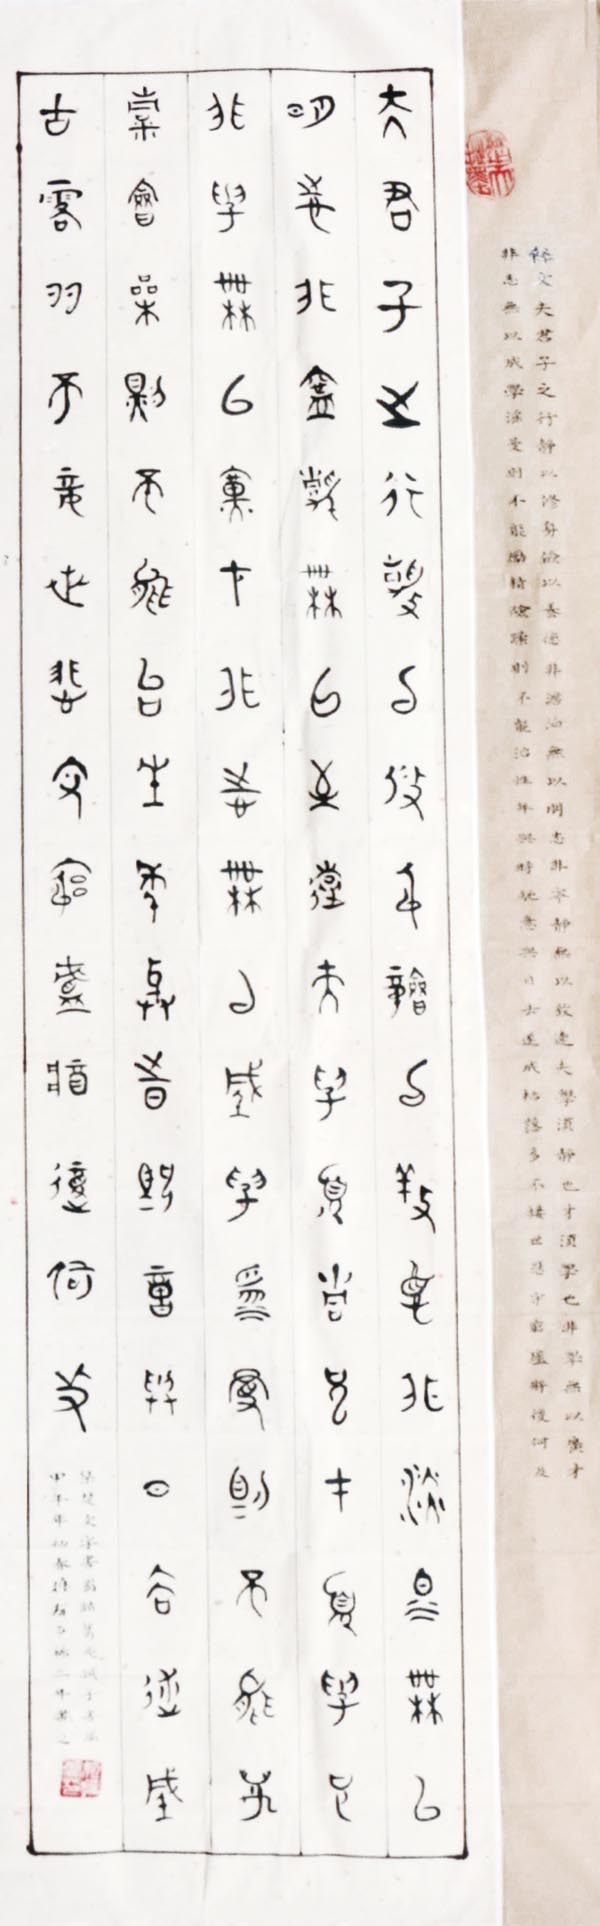 釋文夫君子之行靜以修身儉以養德非澹泊無以明志非寧靜無以致遠夫學須靜也才須學也非學無以廣才
非志無以成學淫慢則不能勵精險躁則不能治性年與時馳意與日去遂成枯落多不接世悲守窮廬將復何及
夫君子之行靜以修身儉以養德非澹泊無以
明志非寧靜無以致遠夫學須靜也才須學也
非學無以廣才非志無以成學淫慢則不能勵
精險躁則不能治性年與時馳意與日去遂成
枯落多不接世悲守窮廬將復何及
集楚文字書諸葛亮誡子書
甲午年初春